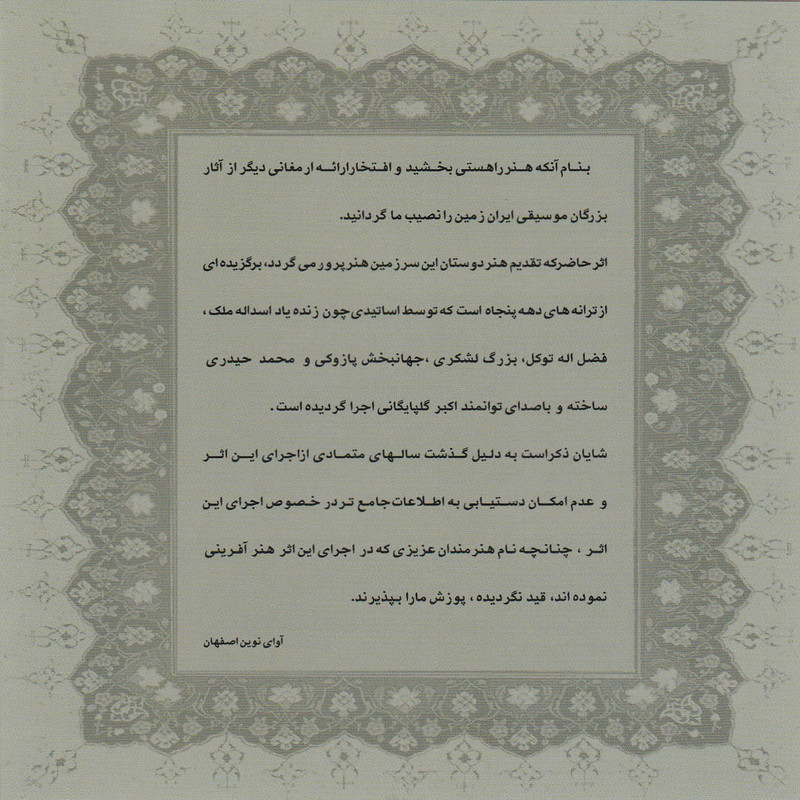 بنام آنکه هنر را هستی بخشید و افتخار ارائه ارمغانی دیگر از آثار
بزرگان موسیقی ایران زمین را نصیب ما گردانید.
اثر حاضر که تقدیم هنر دوستان این سرزمین هنر پرور می گردد، برگزیده ای
از ترانه های دهه پنجاه است که توسط اساتیدی چون زنده یاد اسداله ملک ،
فضل اله توکل، بزرگ لشکری ،جهانبخش پازوکی و محمد حیدری
ساخته و باصدای توانمند اکبر گلپایگانی اجرا گردیده است .
شایان ذکراست به دلیل گذشت سالهای متمادی ازاجرای این اثر
و عدم امکان دستیابی به اطلاعات جامع تر در خصوص اجرای این
اثر ، چنانچه نام هنرمندان عزیزی که در اجرای این اثر هنر آفرینی
نموده اند، قید نگردیده ، پوزش مارا بپذیرند.
آوای نوین اصفهان